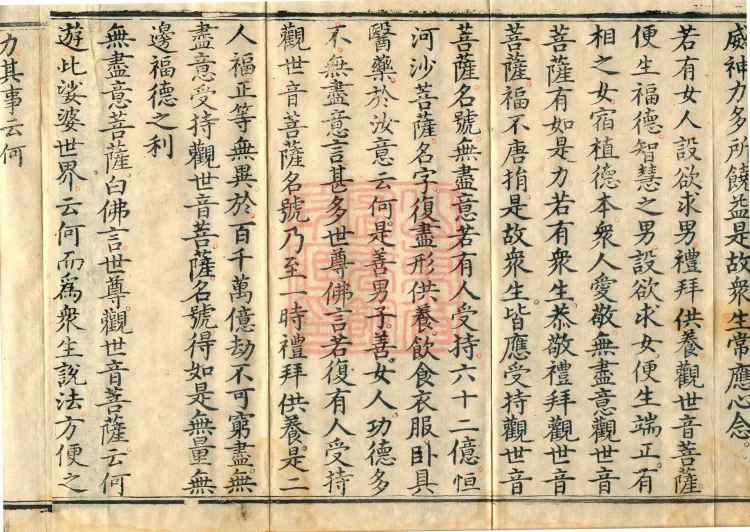 威神力多所饒益是故衆生常應心念。
若有女人設欲求男禮拜供養觀世音菩薩
便生福德智慧之男設欲求女便生端正有
相之女宿植德本衆人愛敬無盡意觀世音
菩薩有如是力若有衆生恭敬禮拜觀世音
菩薩福不唐捐是故衆生皆應受持觀世音
菩薩名號無盡意若有人受持六十二億恒
河沙菩薩名字復盡形供養飲食衣服卧具
醫藥於汝意云何是善男子善女人功德多
不無盡意言甚多世尊佛言若復有人受持
觀世音菩薩名號乃至一時禮拜供養是二
人福正等無異於百千萬億劫不可窮盡無
盡意受持觀世音菩薩名號得如是無量無
邊福德之利
無盡意菩薩白佛言世尊觀世音菩薩云何
遊此娑婆世界云何而爲衆生說法方便之
力其事云何